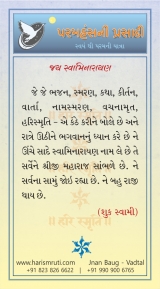 પરમહંસની પ્રસાદી
સ્વયં થી સ્વામીની યાત્રા
જય સ્વામિનારાયણ
જે જે ભજન, સ્મરણ, કથા, કીર્તન,
વાર્તા, નામસ્મરણ, વચનામૃત,
હરિસ્મૃતિ - એ કંઠે કરીને બોલે છે અને
રાત્રે ઊઠીને ભગવાનનું ધ્યાન કરે છે ને
ઊંચે સાદે સ્વામિનારાયણ નામ લે છે તે
સર્વેને શ્રીજી મહારાજ સાંભળે છે. ને
સર્વના સામું જોઈ રહ્યા છે. ને બહુ રાજી
થાય છે.
(શુક સ્વામી)
www.harismruti.com
Jnan Baug - Vadtal
+91 823 826 6622
+91 990 900 6765